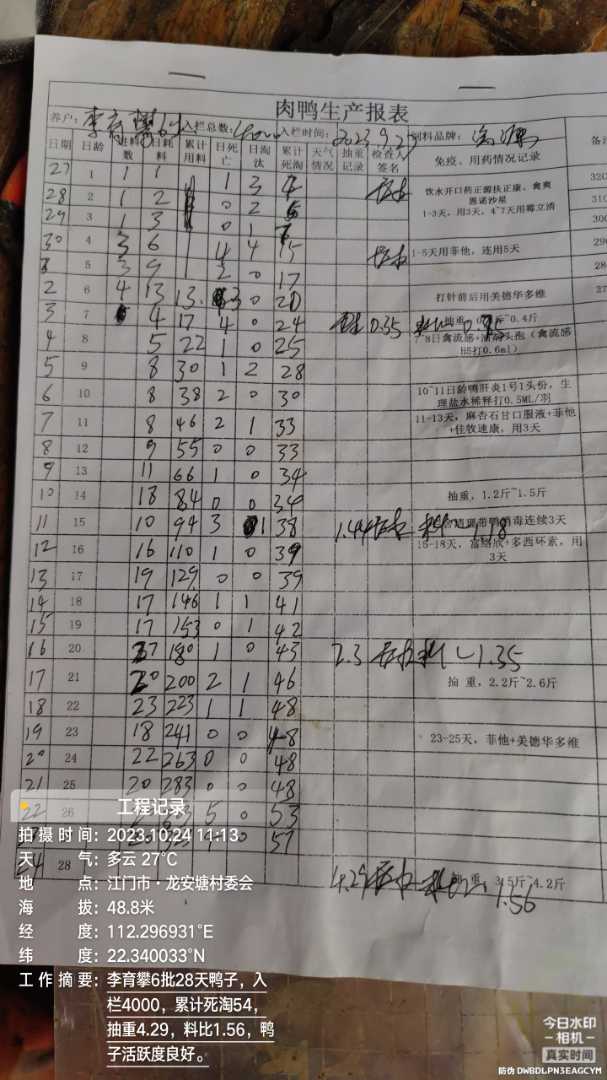 肉鸭生产报表
养户: 李育攀6批 入栏总数: 4000 入栏时间: 2023.9.27 饲料品牌:
日期 日龄 进料数 日耗料 累计用料 日死亡 日淘汰 累计死淘 天气情况 抽重记录 检查人签名 免疫、用药情况记录 备注
27 1 1 1 1 3 4 饮水开口药正源扶正康、禽爽 恩诺沙星
28 2 1 2 0 2 6 1-3天,用3天,4~7天用霉立清
29 3 1 3 0 1 7
30 4 3 6 4 4 15 1-5天用菲他,连用5天
5 3 9 2 0 17
2 6 4 13 13 3 0 20 打针前后用美德华多维
3 7 4 17 4 0 24 0.35 抽重,
4 8 5 22 1 0 25 8日禽流感+ (禽流感H5打0.6ml)
5 9 8 30 1 2 28
6 10 8 38 2 0 30 10~11日龄鸭肝炎1号1头份,生理盐水稀释打0.5ML/羽
7 11 8 46 2 1 33 11-13天,麻杏石甘口服液+菲他+佳牧速康,用3天
8 12 9 55 0 0 33
9 13 11 66 1 0 34
10 14 18 84 0 0 34 抽重,1.2斤~1.5斤
11 15 10 94 3 1 38 1.44 毒连续3天
12 16 16 110 1 0 39 15-18天,富络欣+多西环素,用3天
13 17 19 129 0 0 39
14 18 17 146 1 1 41
15 19 17 153 0 1 42
16 20 27 180 1 0 43 2.3 1.35
17 21 20 200 2 1 46 抽重,2.2斤~2.6斤
18 22 23 223 1 1 48
19 23 18 241 0 0 48 23-25天,菲他+美德华多维
20 24 22 263 0 0 48
21 25 20 283 0 0 48
22 26 5 0 53
27 57
24 28 4.29 重,3.5斤~4.2斤 1.56
工程记录
拍摄时间: 2023.10.24 11:13
天气: 多云 27℃
地点: 江门市·龙安塘村委会
海拔: 48.8米
经度: 112.296931°E
纬度: 22.340033°N
工作摘要: 李育攀6批28天鸭子,入
栏4000,累计死淘54,
抽重4.29,料比1.56,鸭
子活跃度良好。
今日水印
-相机-
真实时间
防伪 DWBDLPN3EAGCYM